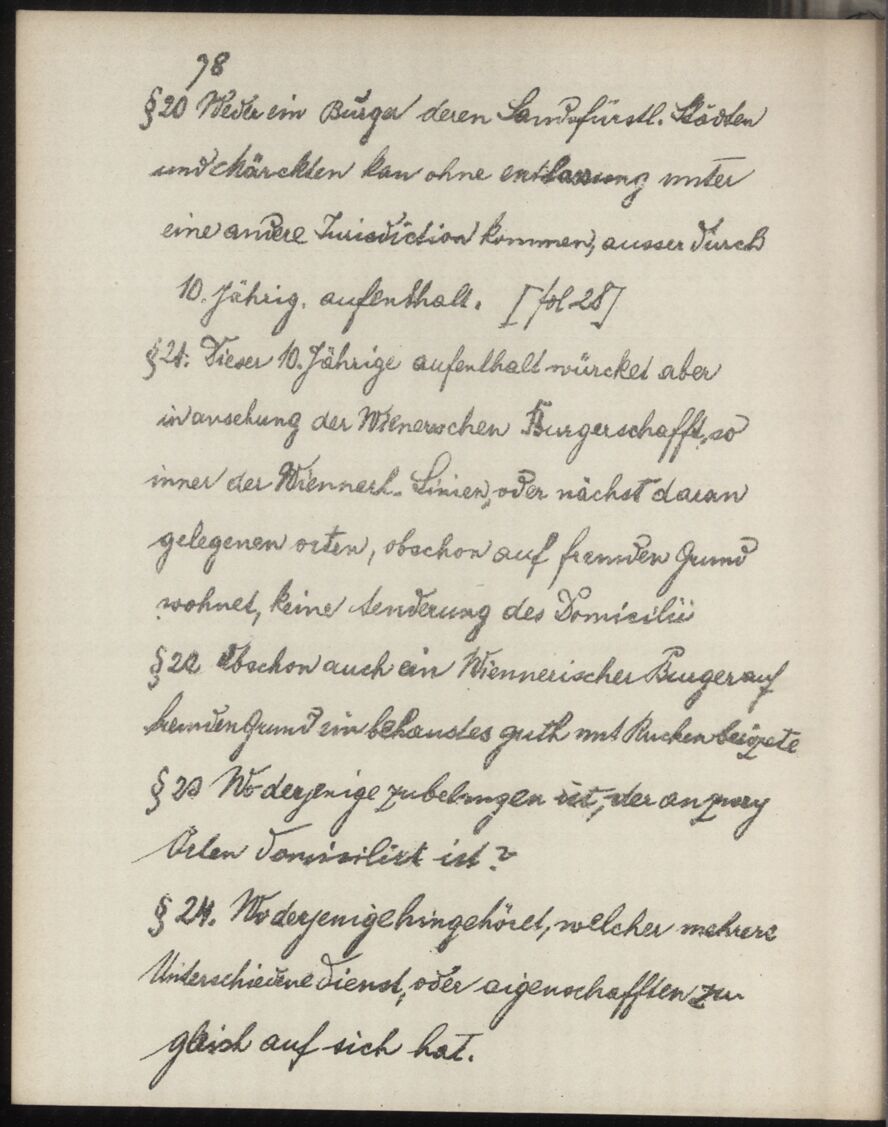 78
§20 Weder ein Burger deren Landsfürstl. Städten
und Märckten kan ohne entlassung unter
eine andere Jurisdiction kommen, ausser durch
10. Jährig. aufenthalt. [fol 28]
§21. Dieser 10. Jährige aufenthalt würcket aber
in ansehung der Wienerischen Burgerschafft, so
inner der Wiennerl. Linien, oder nächst daran
gelegenen orten, obschon auf fremden Grund
wohnet, keine Aenderung des Domicilii
§22 Obschon auch ein Wiennerischer Burger auf
fremden Grund ein behaustes guth mit Rucken besizete
§23 Wo derjenige zubelangen ist, der an zwey
Orten domicilirt ist?
§24. Wo derjenige hingehöret, welcher mehrere
Unterschiedene dienst, oder aigenschafften zu
gleich auf sich hat.